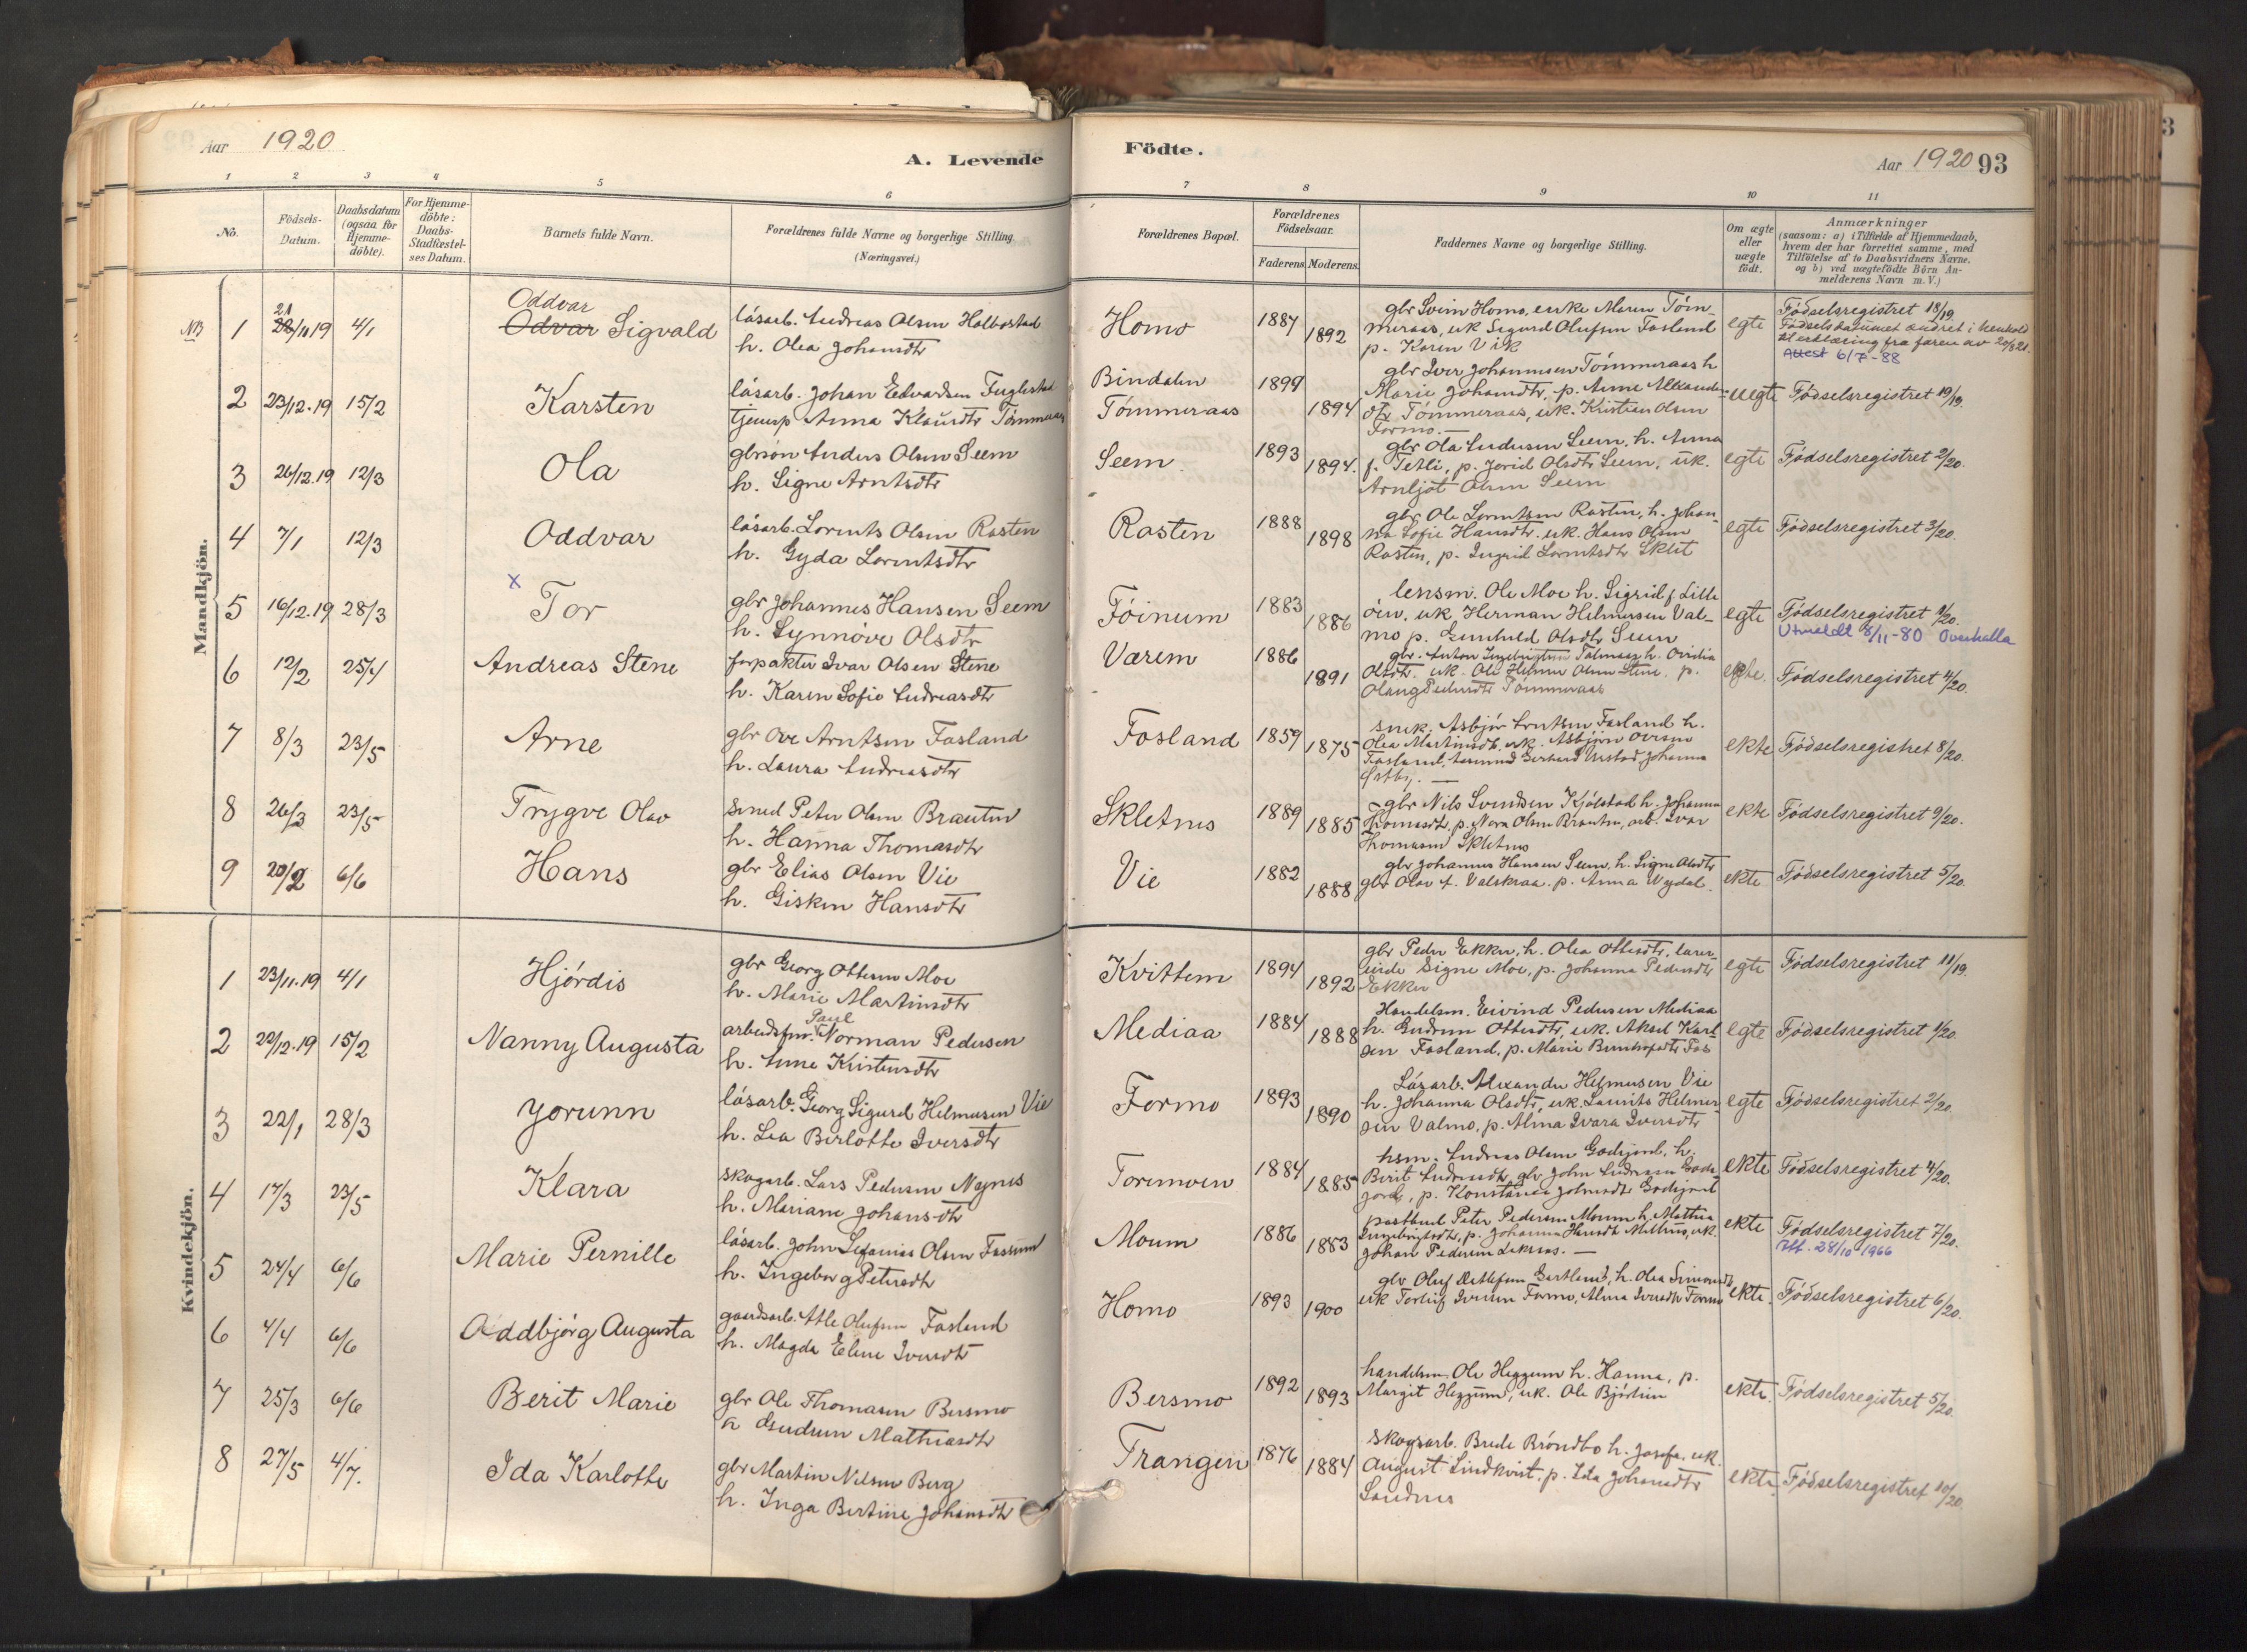 Aar 1920
A. Levende
Födte.
Aar 1920 93
1 2 3 4 5 6 7 8 9 10 11
No.
Födsels-
Datum.
Daabsdatum
(ogsaa for
Hjemme-
döbte).
For Hjemme-
döbte:
Daabs-
Stadfæstel-
ses Datum.
Barnets fulde Navn.
Forældrenes fulde Navne og borgerlige Stilling
(Næringsvei.)
Forældrenes Bopæl.
Forældrenes
Födselsaar.
Faderens Moderens
Faddernes Navne og borgerlige Stilling.
Om ægte
eller
uægte
født.
Anmærkninger
(saasom: a) i Tilfælde af Hjemmedaab,
hvem der har forrettet samme, med
Tilföielse af to Daabsvidners Navne.
og b) ved uægtefödte Börn An-
melderens Navn m. V.)
Mandkjön.
NB 1 21 28/11 19 4/1
Oddvar
Odvar Sigvald
låsarb. Andreas Olsen Holbostad
h. Olea Johansdtr
Homo 1887 1892
gbr Svein Homo, enke Maren Töm-
meraas, uk Sigurd Olufsen Fosland
p. Karen Vik
egte
Födselsregistret 18/19.
Födselsdatumet endret i henhold
til erklæring fra faren av 20/821.
Attest 6/7-88
2 23/12.19 15/2 Karsten
låsarb. Johan Edvardsen Fuglestad
tjenesp Anna Klausdtr Tömmeraas
Bindalen
Tömmeraas
1899 1894
gbr Iver Johannesen Tömmeraas h
Marie Johansdtr, p. Anne Alexander-
dtr Tömmeraas, uk. Kristian Olsen
Formo.—
uegte Födselsregistret 19/19.
3 26/12.19 12/3 Ola
gbrsön Anders Olsen Seem
h. Signe Arntsdtr
Seem 1893 1894.
gbr Ola Andersen Seem, h. Anna
f. Tetli, p. Jorid Olsdtr Seem, uk.
Arnljot Olsen Seem
egte Födselsregistret 2/20.
4 7/1 12/3 Oddvar
låsarb. Lorents Olsen Rosten
h. Gyda Lorentsdtr
Rosten 1888 1898
gbr Ole Lorentsen Rosten, h. Johan-
na Sofie Hansdtr. uk. Hans Olsen
Rosten, p. Ingrid Lorentsdtr Sklet
egte Födselsregistret 3/20.
x
5 16/12.19 28/3 Tor
gbr Johannes Hansen Seem
h. Synnöve Olsdtr
Föinum 1883 1886
lensm. Ole Moe h. Sigrid f Lille
öien, uk Herman Helmersen Val-
mo p. Gunhild Olsdtr Seem
egte Födselsregistret 1/20.
Utmeldt 8/11-80 Overhalla
6 12/2 25/4 Andreas Stene
forpakter Ivar Olsen Stene
h. Karen Sofie Andreasdtr
Værem 1886 1891
gbr. Anton Ingebrigtsen Tolmaas h. Ovidia
Olsdtr. uk. Ole Helmer Olsen Stene, p.
Olaug Pedersdtr Tömmeraas
ekte. Födselsregistret 4/20.
7 8/3 23/5 Arne
gbr Ove Arntsen Fosland
h. Laura Andreasdtr
Fosland 1859 1875
snek. Asbjör Arntsen Fosland h.
Olea Martinsdtr. uk. Asbjörn Ovesen
Fosland, Gerhard Johanna
Østby.—
ekte Födselsregistret 8/20.
8 26/3 23/5 Trygve Olav
smed Peter Olsen Brauten
h. Hanna Thomasdtr
Skletnes 1889 1885
gbr Nils Svendsen Kjölstad h. Johanna
Thomasdtr, p. Nora Olsen Brauten, arb. Ivar
Thomasen Skletnes
ekte Födselsregistret 9/20.
9 20/2 6/6 Hans
gbr Elias Olsen Vie
h. Gisken Hansdtr
Vie 1882 1888
gbr Johannes Hansen Seem, h. Signe Olsdtr
gbr Olav f. Valskraa. p. Anna Wydal
ekte Födselsregistret 5/20.
Kvindekjön.
1 23/11.19 4/1 Hjördis
gbr Georg Ottesen Moe
h. Marie Martinsdtr
Kvittem 1894 1892
gbr Peder Ekker, h. Olea Ottesdtr, lærer-
inde Signe Moe, p. Johanna Pedersdtr
Ekker
egte Födselsregistret 11/19.
2 22/12.19 15/2 Nanny Augusta
Paul
arbeidsfm. Norman Pedersen
h. Anne Kristensdtr
Mediaa 1884 1888
Handelsm. Eivind Pedersen Mediaa
h. Gudrun Ottersdtr, uk. Aksel Karl-
sen Fosland, p. Marie Fos
egte Födselsregistret 1/20.
3 22/1 28/3 Jorunn
låsarb. Georg Sigurd Helmersen Vie
h. Lea Berlotte Iversdtr
Formo 1893 1890
Låsarb. Alexander Helmersen Vie
h. Johanna Olsdtr, uk. Laurits Helmer-
sen Valmo, p. Alma Ivara Iversdtr
egte Födselsregistret 2/20.
4 17/3 23/5 Klara
skogarb. Lars Pedersen Nynes
h. Mariane Johansdtr
Toremoen 1884 1885
hsm. Andreas Olsen Godejord, h.
Berit Andersdtr, gbr John Andreasen Gode
jord, p. Konstance Johnsdtr Godejord
ekte Födselsregistret 4/20.
5 24/4 6/6 Marie Pernille
låsarb. John Sefanias Olsen Fossum
h. Ingeborg Petersdtr
Moum 1886 1883
postbud Peter Pedersen Moum h. Mattea
Ingebrigtsdtr, p. Johanna Hansdtr uk.
Johan Pedersen Leksaas.—
ekte Födselsregistret 7/20.
Utf. 28/10 1966
6 4/4 6/6 Oddbjörg Augusta
gaardsarb. Atle Olufsen Fosland
h. Magda Eline Iversdtr
Homo 1893 1900
gbr Oluf Detlefsen Gartland, h. Olea Simonsdtr
uk Torleif Iversen Formo, Alma Iversdtr Formo
ekte. Födselsregistret 6/20.
7 25/3 6/6 Berit Marie
gbr Ole Thomasen Bersmo
h Gudrun Mathiasdtr
Bersmo 1892 1893
handelsm. Ole Heggum h. Hanna, p.
Margit Heggum, uk. Ole Björhein
ekte. Födselsregistret 5/20.
8 27/5 4/7. Ida Karlotte
gbr Martin Nilsen Berg
h. Inga Bertine Johansdtr
Trangen 1876 1884
skogsarb. Brede Bröndbo h. Josefa, uk.
August Lindkvist, p. Ida Johansdtr
Sandnes
ekte. Födselsregistret 10/20.